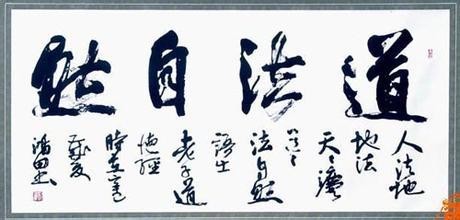 道法自然
人法地
地法
天々法
道々
法自然
語出
老子道
德經